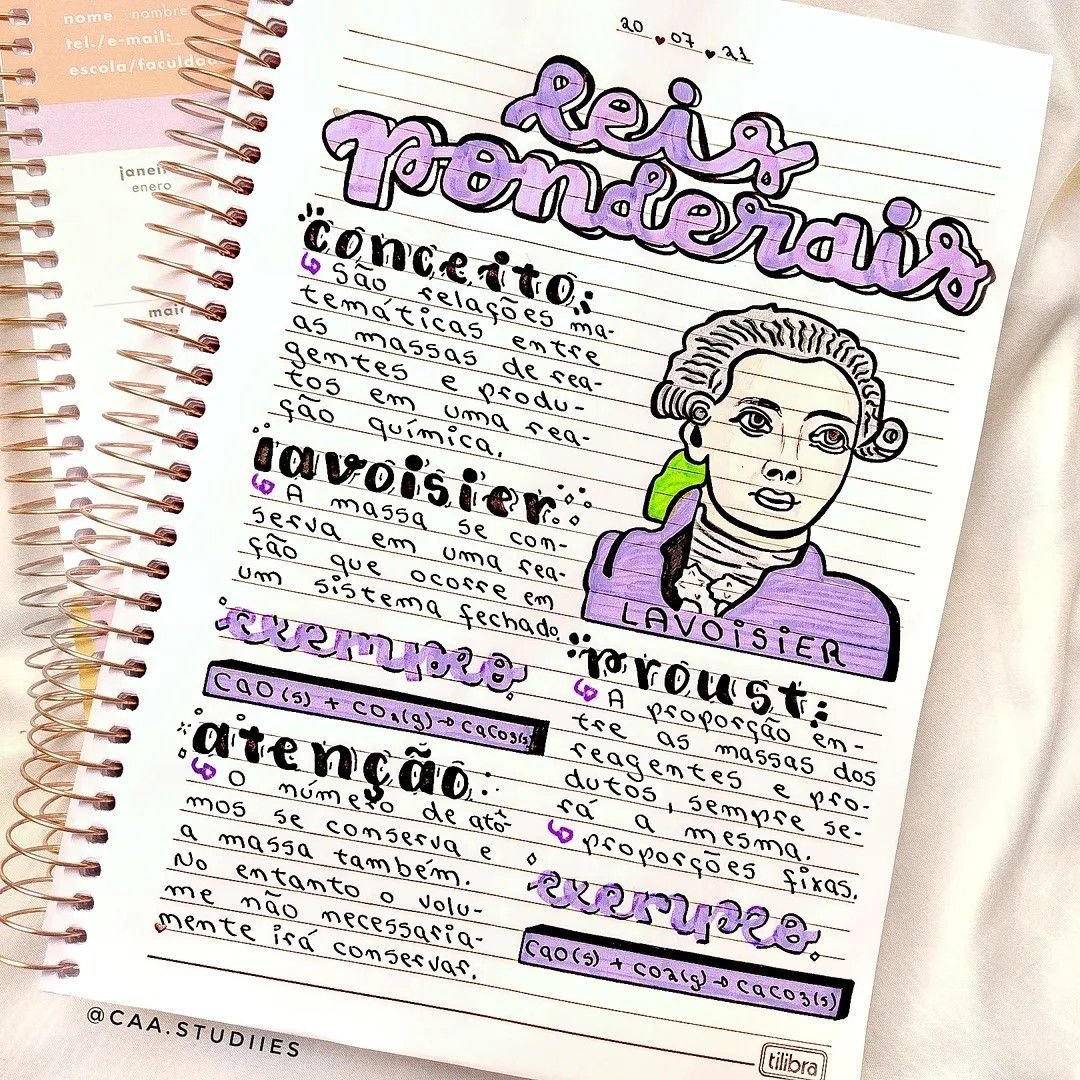 nome nombre
tel./e-mail:
escola/faculdade
janei
enero
maio
20 ♥ 07 ♥ 21
Leis
ponderais
conceito:
↳ São relações ma-
temáticas entre
as massas de rea-
gentes e produ-
tos em uma rea-
ção química.
lavoisier
↳ A massa se con-
serva em uma rea-
ção que ocorre em
um sistema fechado.
exemplo
CaO(s) + CO2(g) → CaCO3(s)
atenção
↳ O número de áto-
mos se conserva e
a massa também.
No entanto o volu-
me não necessaria-
mente irá conservar.
LAVOiSiER
proust:
↳ A proporção en-
tre as massas dos
reagentes e pro-
dutos, sempre se-
rá a mesma.
↳ proporções fixas.
exemplo
CaO(s) + CO2(g) → CaCO3(s)
@CAA.STUDIIES
tilibra